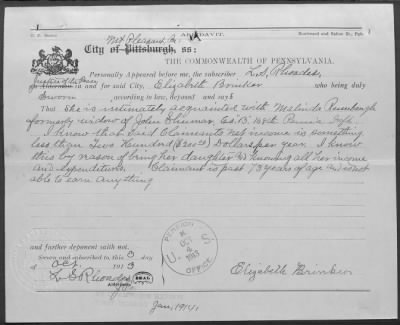 AFFIDAVIT.
Mt Pleasant Pa
City of Pittsburgh, ss:
THE COMMONWEALTH OF PENNSYLVANIA.
Personally Appeared before me, the subscriber L. S. Rhoades,
Justice of the Peace
in and for said City, Elizabeth Brinker who being duly
Sworn according to law, deposes and says
That She is intimately acquainted with Malinda Rumbaugh
formerly widow of John Shuman Co. B. 168th Penna Inft
I know that said Claimants net income is something
less than Two Hundred ($200.00) Dollars per year. I know
this by reason of being her daughter & knowing all her income
and expenditures. Claimant is past 73 years of age and is not
able to earn anything
and further deponent saith not.
Sworn and subscribed to this 3 day
of Oct. 1913
L. S. Rhoades
Alderman
SEAL
PENSION
OCT
4
1913
U. S.
OFFICE
Elizabeth Brinker
Jan, 1914,